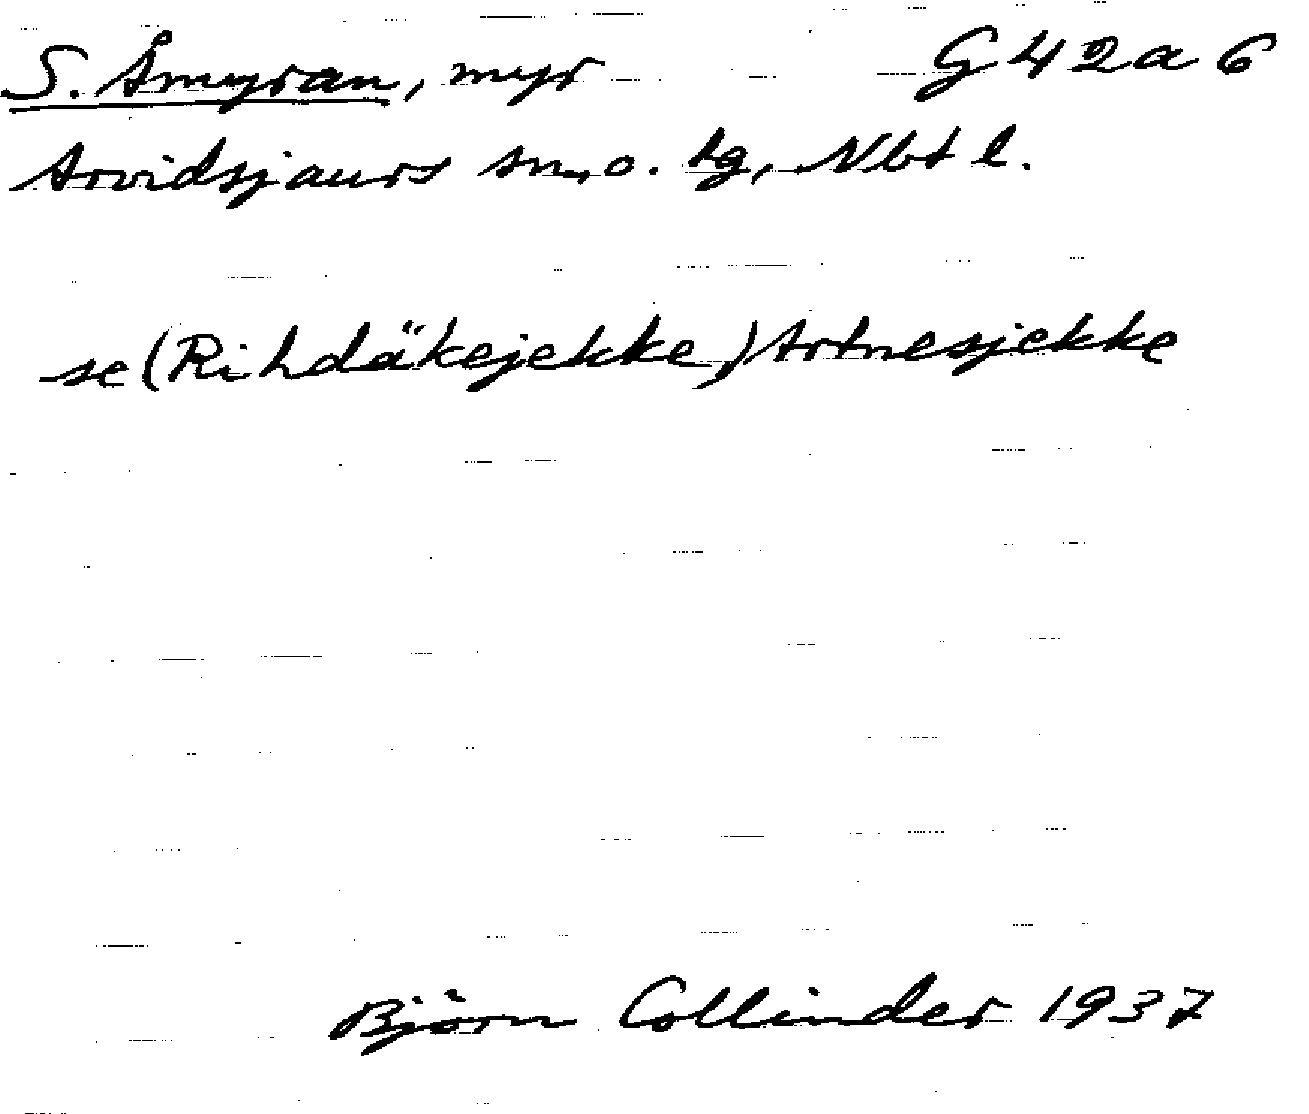 S. Åmyran, myr G42a6
Arvidsjaurs sn o. tg, Nbtl.
se (Rihdäkejekke) Artnesjekke
Björn Collinder 1937